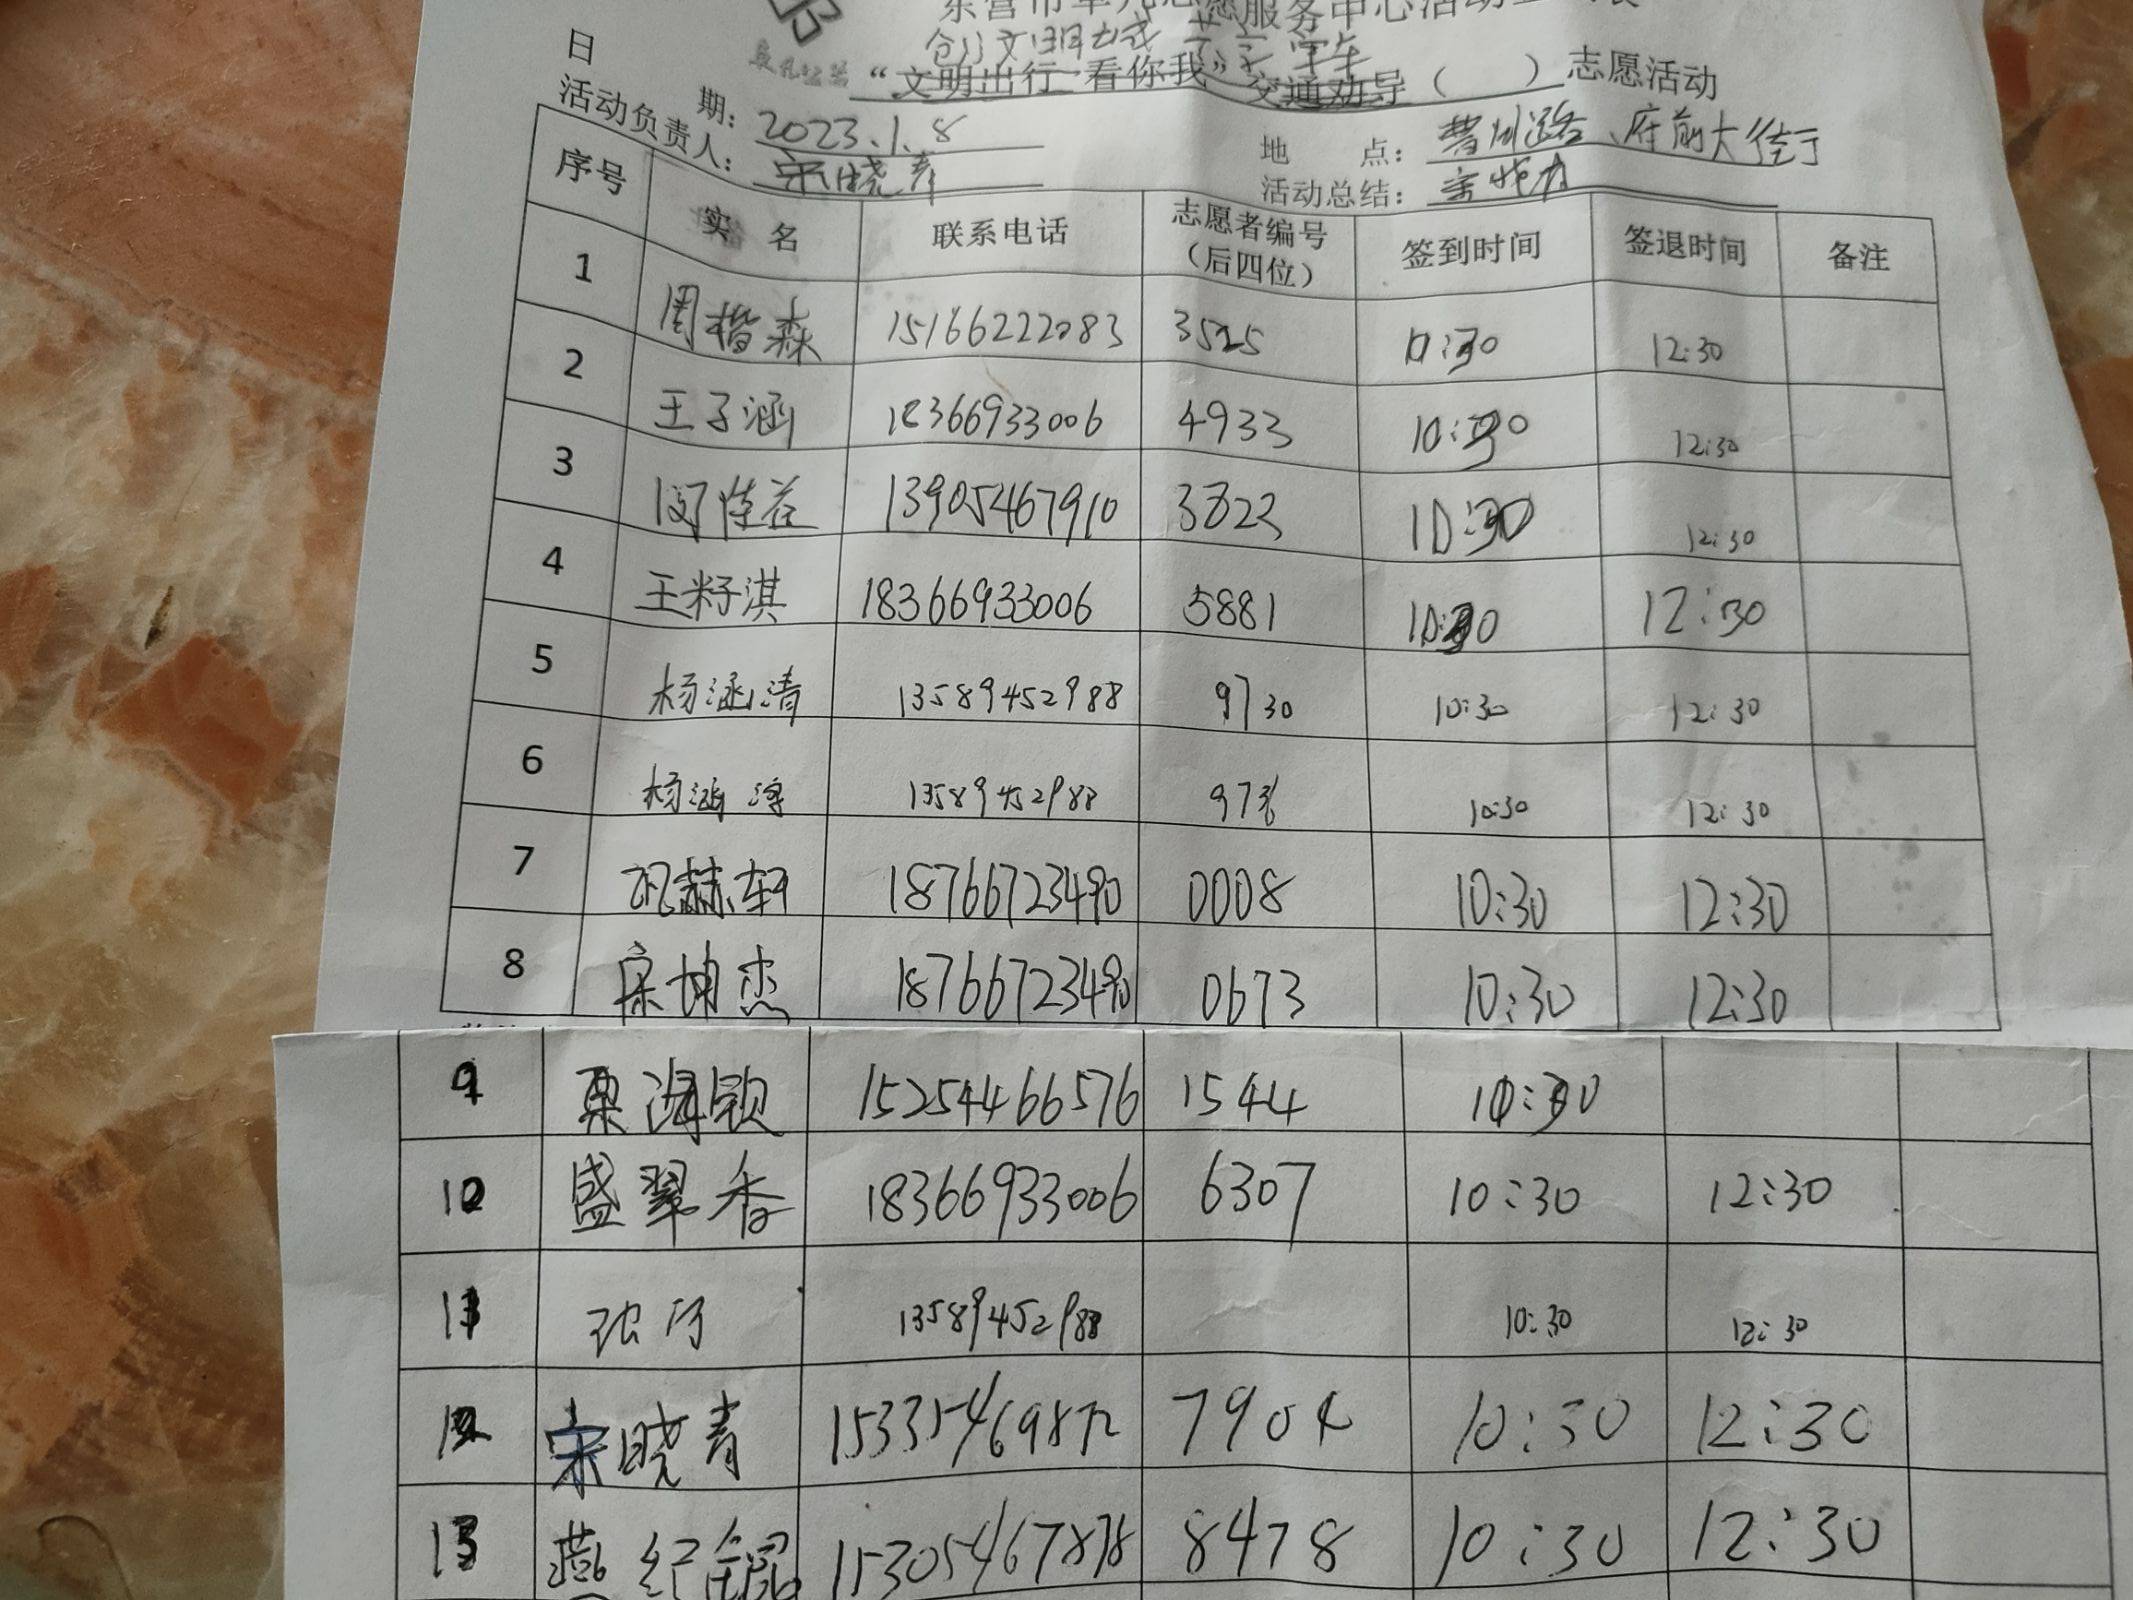 服务中心活动
创文明城 共享单车
“文明出行 看你我” 交通劝导（ ）志愿活动
日 期：2023.1.8
地 点：曹州路、府前大街
活动负责人：宋晓青
活动总结：宋晓青
序号 实 名 联系电话 志愿者编号（后四位） 签到时间 签退时间 备注
1 周楷森 15166222083 3525 10:30 12:30
2 王子涵 18366933006 4933 10:30 12:30
3 13905467910 3823 10:30 12:30
4 王籽淇 18366933006 5881 10:30 12:30
5 杨涵清 13589452988 9730 10:30 12:30
6 杨涵 13589452988 10:30 12:30
7 赫轩 18766723490 0008 10:30 12:30
8 宋坤杰 18766723490 0673 10:30 12:30
9 15254466576 1544 10:30
10 盛翠香 18366933006 6307 10:30 12:30
11 13589452988 10:30 12:30
12 宋晓青 15335469872 7904 10:30 12:30
13 燕纪锟 15305467878 8478 10:30 12:30